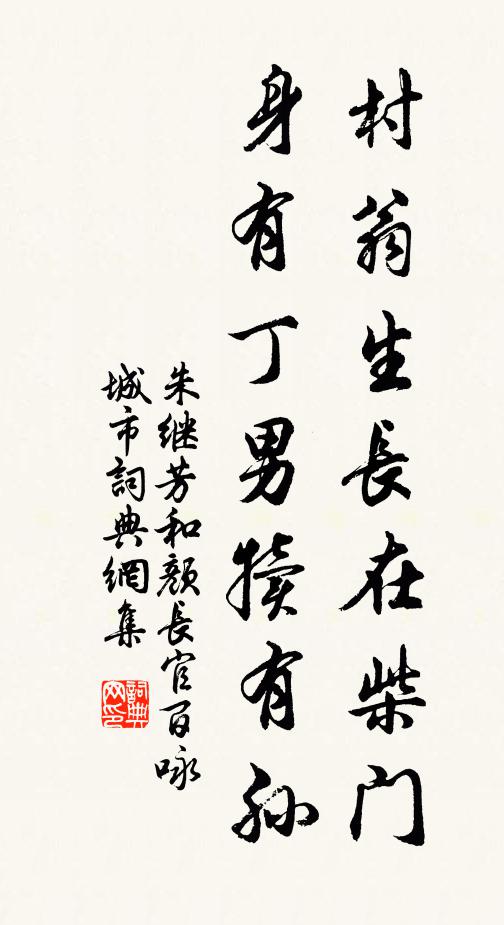 村翁生長在柴门
身有丁男犢有孙
朱继芳和颜長官百咏
城市詞典網集
詞典网印